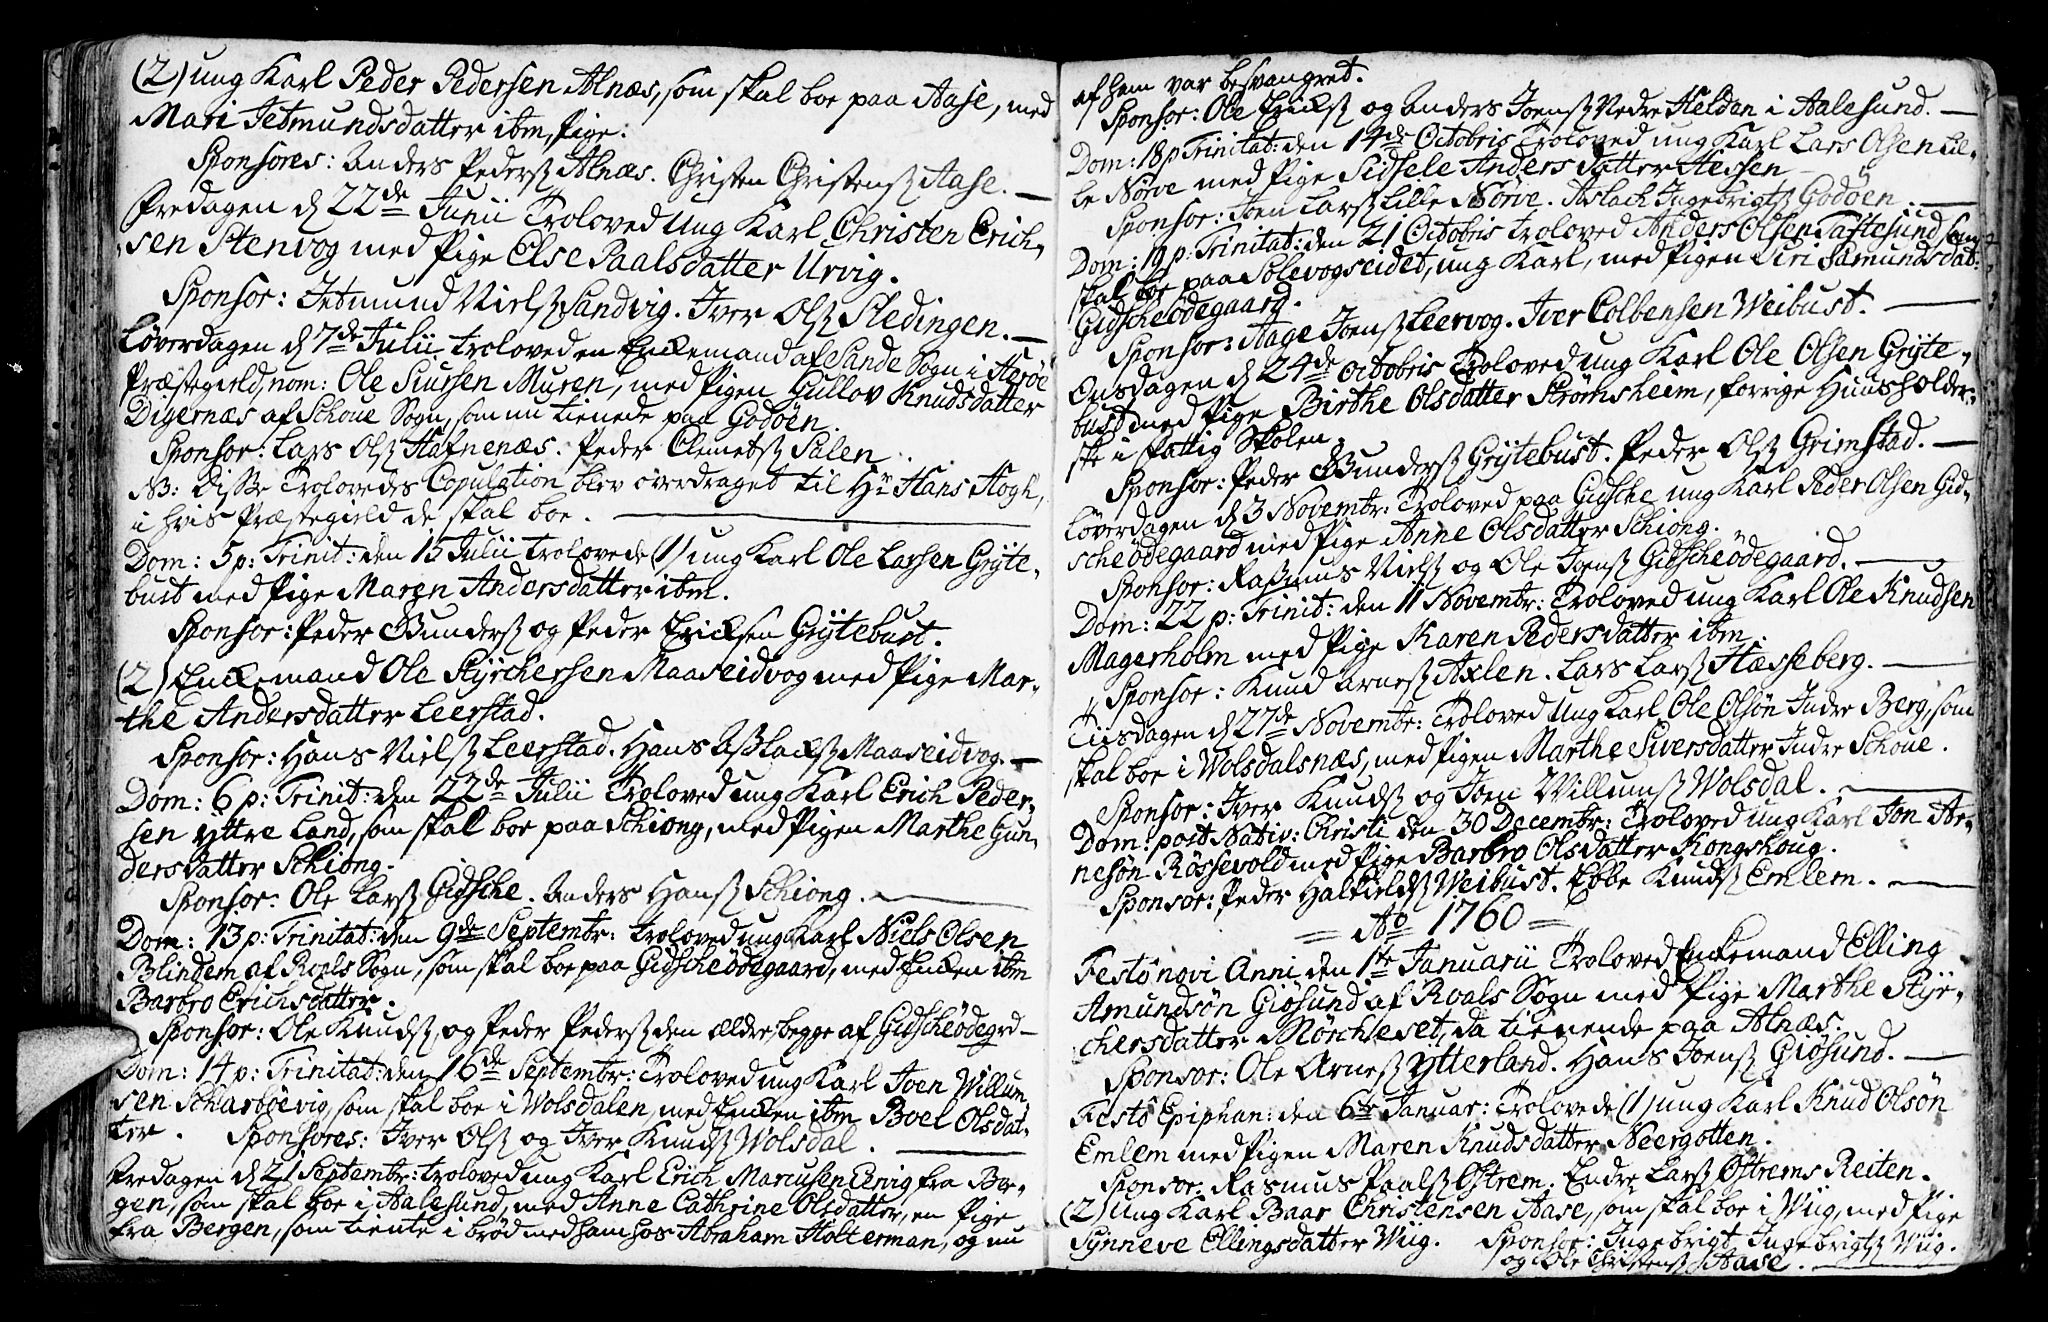 (2) ung Karl Peder Pedersen Alnæs, som skal boe paa Aase, med
Mari Jetmundsdatter ibm, Pige.
Sponsores: Anders Pederß Alnæs. Christen Christenß Aase. —
Fredagen d 22de Junii Troloved Ung Karl Christen Erich-
sen Stenvog med Pige Else Paalsdatter Urvig.
Sponsor: Jetmund Nielß Sandvig. Iver Olß Sledingen. —
Løverdagen d 7de Julii troloved en Enckemand af Sande Sogn i Herøe
Præstegield, nom: Ole Siursen Muren, med Pigen Gullov Knudsdatter
Digernæs af Schoue Sogn, som nu tienede paa Godøen.
Sponsor: Lars Olß Hafnenæs. Peder Clemetß Sulen.
NB: Disse Trolovedes Copulation blev overdraget til Hr Hans Hogh,
i hvis Præstegield de skal boe. —
Dom: 5 p: Trinit: den 15 Julii trolovede (1) ung Karl Ole Larsen Grÿte-
bust med Pige Maren Andersdatter ibm.
Sponsor: Peder Gunderß og Peder Ericksen Grÿtebust.
(2) Enckemand Ole Stÿrchersen Maaseidvog med Pige Mar-
the Andersdatter Leerstad.
Sponsor: Hans Nielß Leerstad. Hans Aßlackß Maaseidvog. —
Dom: 6 p: Trinit: den 22de Julii Troloved ung Karl Erich Peder-
sen Yttre Land, som skal boe paa Schiong, med Pigen Marthe Gun-
dersdatter Schiong.
Sponsor: Ole Larß Gidsche. Anders Hanß Schiong. —
Dom: 13 p: Trinitat: den 9de Septembr: troloved ung Karl Niels Olsen
Blindem af Roals Sogn, som skal boe paa Gidscheødegaard, med Encken ibm
Barbro Erichsdatter.
Sponsor: Ole Knudß og Peder Pederß den ældre, begge af Gidscheødegrd —
Dom: 14 p: Trinitat: den 16de Septembr: Troloved ung Karl Joen Willum-
sen Scharbøevig, som skal boe i Wolsdalen, med Encken ibm Boel Olsdat-
ter. Sponsores: Iver Olß og Iver Knudß Wolsdal. —
Fredagen d 21 Septembr: troloved ung Karl Erich Marcusen Ervig fra Ber-
gen, som skal boe i Aalesund, med Anne Cathrine Olsdatter, en Pige
fra Bergen, som tiente i brød med ham hos Abraham Holterman, og nu
af hem var besvangret.
Sponsor: Ole Erickß og Anders Joenß Nedre Helden i Aalesund. —
Dom: 18 p Trinitat: den 14de Octobris Troloved ung Karl Lars Olsen Lil-
le Nørve med Pige Sidsele Anders datter Hessen
Sponsor: Joen Larß Lille Nørve. Aslach Ingebrigtß Godøen. —
Dom: 19 p: Trinitat: den 21 Octobris troloved Anders Olsen Taftesund som
skal boe paa Solevogseidet, ung Karl, med Pigen Siri Samundsdat:
Gidscheødegaard.
Sponsor: Aage Joenß Leervog. Iver Colbensen Weibust. —
Onsdagen d 24de Octobris Troloved ung Karl Ole Olsen Grÿte-
bust med Pige Birthe Olsdatter Strømsheim, forrige Huusholder-
ske i fattig Skolen.
Sponsor: Peder Gunderß Grÿtebust. Peder Olß Grimstad. —
Løverdagen d 3 Novembr: Troloved paa Gidsche ung Karl Peder Olsen Gid-
scheødegaard med Pige Anne Olsdatter Schiong.
Sponsor: Raßmus Nielß og Ole Joenß Gidscheødegaard. —
Dom: 22 p: Trinit: den 11 Novembr: Troloved ung Karl Ole Knudsen
Magerholm med Pige Karen Pedersdatter ibm.
Sponsor: Knud Arneß Axlen. Lars Larß Hæsseberg. —
Tiisdagen d 27de Novembr: Troloved Ung Karl Ole Olsøn Indre Berg, som
skal boe i Wolsdalsnæs, med Pigen Marthe Siversdatter Indre Schoue.
Sponsor: Iver Knudß og Joen Willumß Wolsdal. —
Dom: post Nativ: Christi den 30 Decembr: Troloved ung Karl Jon Ar-
nesøn Røssevold med Pige Barbro Olsdatter Kongshoug.
Sponsor: Peder Halkieldß Weibust. Ebbe Knudß Emlem. —
= Ao 1760 =
Festô novi Anni den 1te Januarii Troloved Enkemand Elling
Amundsøn Giøsund af Roals Sogn med Pige Marthe Stÿr-
chersdatter Mørchleset, da tienende paa Alnæs.
Sponsor: Ole Arneß Ytterland. Hans Joenß Giøsund. —
Festô Epiphan: den 6te Januar: Trolovede (1) ung Karl Knud Olsøn
Emlem med Pigen Maren Knudsdatter Neergotten.
Sponsor: Rasmus Paalß Østrem. Endre Larß Østrems Reiten.
(2) Ung Karl Baar Christensen Aase, som skal boe i Wiig, med Pige
Synneve Ellingsdatter Wiig. Sponsor: Ingebrigt Ingebrigtß Wiig.
og Ole Christenß Aase. —